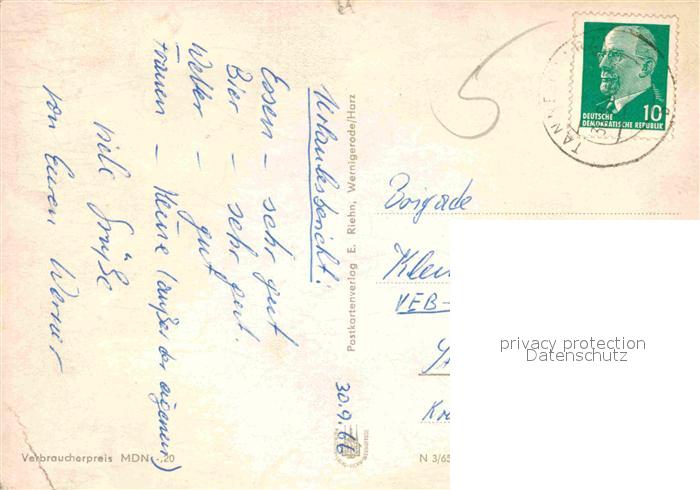 Urlaubsbericht:
Essen - sehr gut
Bier - sehr gut.
Wetter - gut
Frauen - Keine (außer der eigenen)
Viele Grüße
von Eurem Werner
30.9.66
Postkartenverlag E. Riehn, Wernigerode/Harz
Verbraucherpreis MDN -,20
N 3/65
DEUTSCHE
DEMOKRATISCHE REPUBLIK
10
TANNE
Brigade
VEB-
privacy protection
Datenschutz